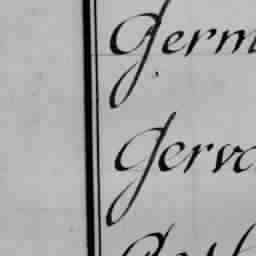 Germ
Gerva